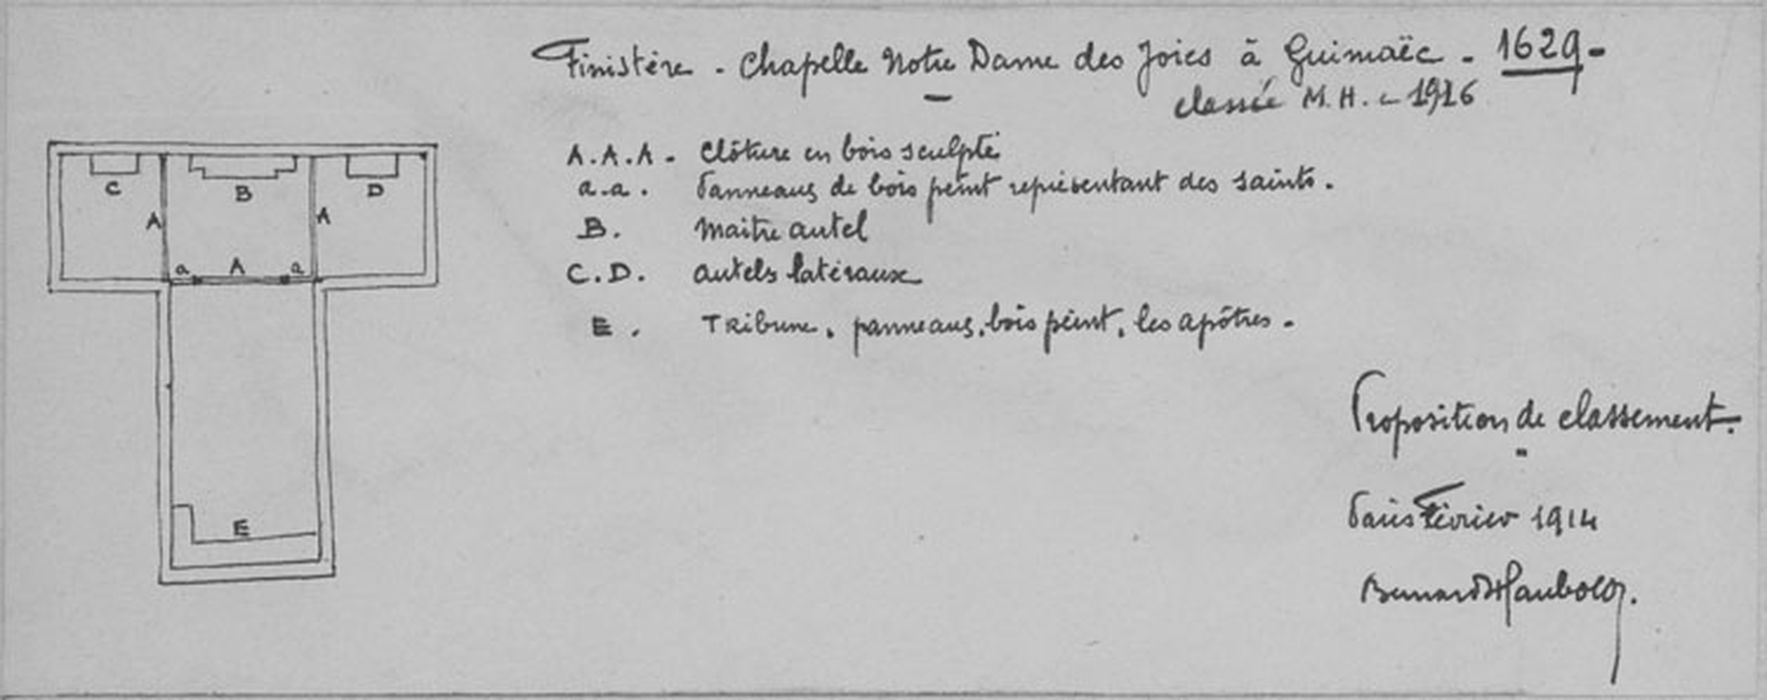 Finistère - Chapelle Notre Dame des Joies à Guimaëc - 1629 -
classée M.H. - 1916
A.A.A - Clôture en bois sculpté
a.a. Panneaux de bois peint représentant des saints.
B. Maitre autel
C.D. autels latéraux
E. Tribune, panneaux, bois peint, les apôtres -
C
B
D
A
A
a
A
a
E
Proposition de classement.
Paris Février 1914
Bernard Haubold.